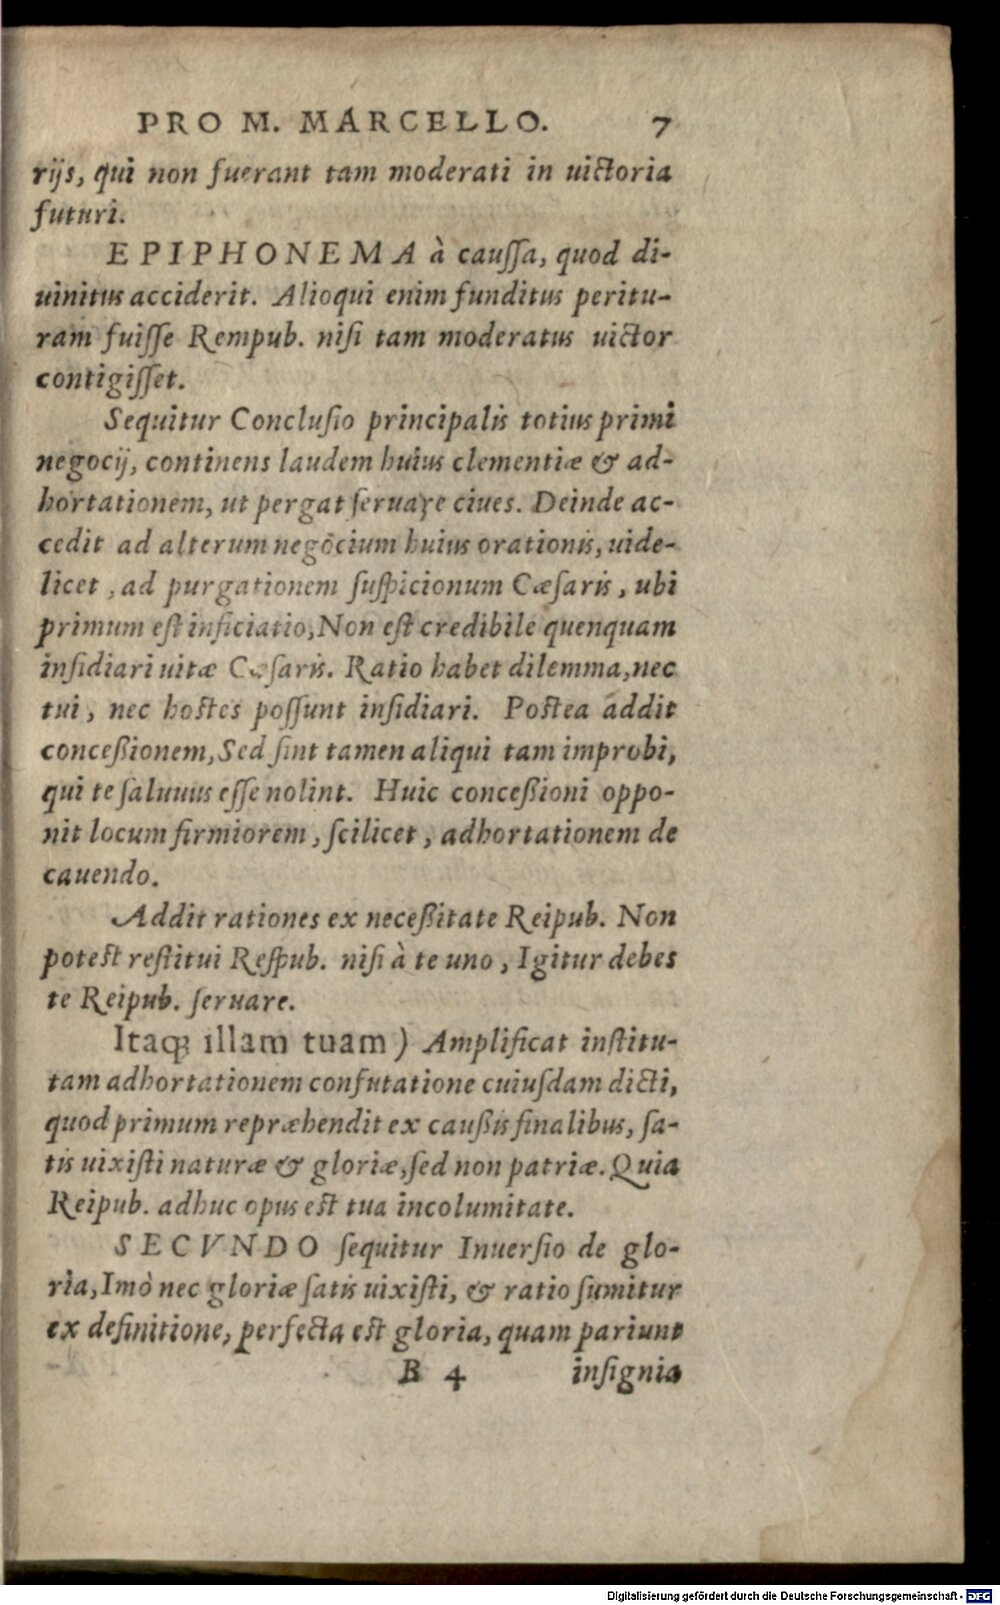 PRO M. MARCELLO. 7
rijs, qui non fuerant tam moderati in uictoria
futuri.
EPIPHONEMA à cauſſa, quod di-
uinitus acciderit. Alioqui enim funditus peritu-
ram fuiſſe Rempub. niſi tam moderatus uictor
contigiſſet.
Sequitur Concluſio principalis totius primi
negocij, continens laudem huius clementiæ & ad-
hortationem, ut pergat ſeruare ciues. Deinde ac-
cedit ad alterum negocium huius orationis, uide-
licet, ad purgationem ſuſpicionum Cæſaris, ubi
primum eſt inficiatio, Non eſt credibile quenquam
inſidiari uitæ Cæſaris. Ratio habet dilemma, nec
tui, nec hoſtes poſſunt inſidiari. Poſtea addit
conceßionem, Sed ſint tamen aliqui tam improbi,
qui te ſaluuus eſſe nolint. Huic conceßioni oppo-
nit locum firmiorem, ſcilicet, adhortationem de
cauendo.
Addit rationes ex neceßitate Reipub. Non
poteſt reſtitui Reſpub. niſi à te uno, Igitur debes
te Reipub. ſeruare.
Itaqꝫ illam tuam) Amplificat inſtitu-
tam adhortationem confutatione cuiuſdam dicti,
quod primum repræhendit ex caußis finalibus, ſa-
tis uixiſti naturæ & gloriæ, ſed non patriæ. Quia
Reipub. adhuc opus eſt tua incolumitate.
SECVNDO ſequitur Inuerſio de glo-
ria, Imò nec gloriæ ſatis uixiſti, & ratio ſumitur
ex definitione, perfecta eſt gloria, quam pariunt
B 4 inſignia
Digitalisierung gefördert durch die Deutsche Forschungsgemeinschaft - DFG